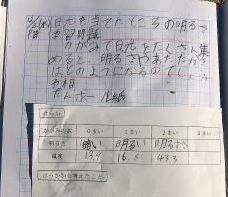 日光を当てたところの明るさ
学習問題
かがみで日光をたくさん集
めると、明るさやあたたかさ
はどのようになるのでしょうか
予想
だんボール紙
けっか
かがみの数 0まい 1まい 2まい
明るさ 暗い 明るい 明るすぎ
温度 13.9 16.5 43.3
けっかから考えたこと